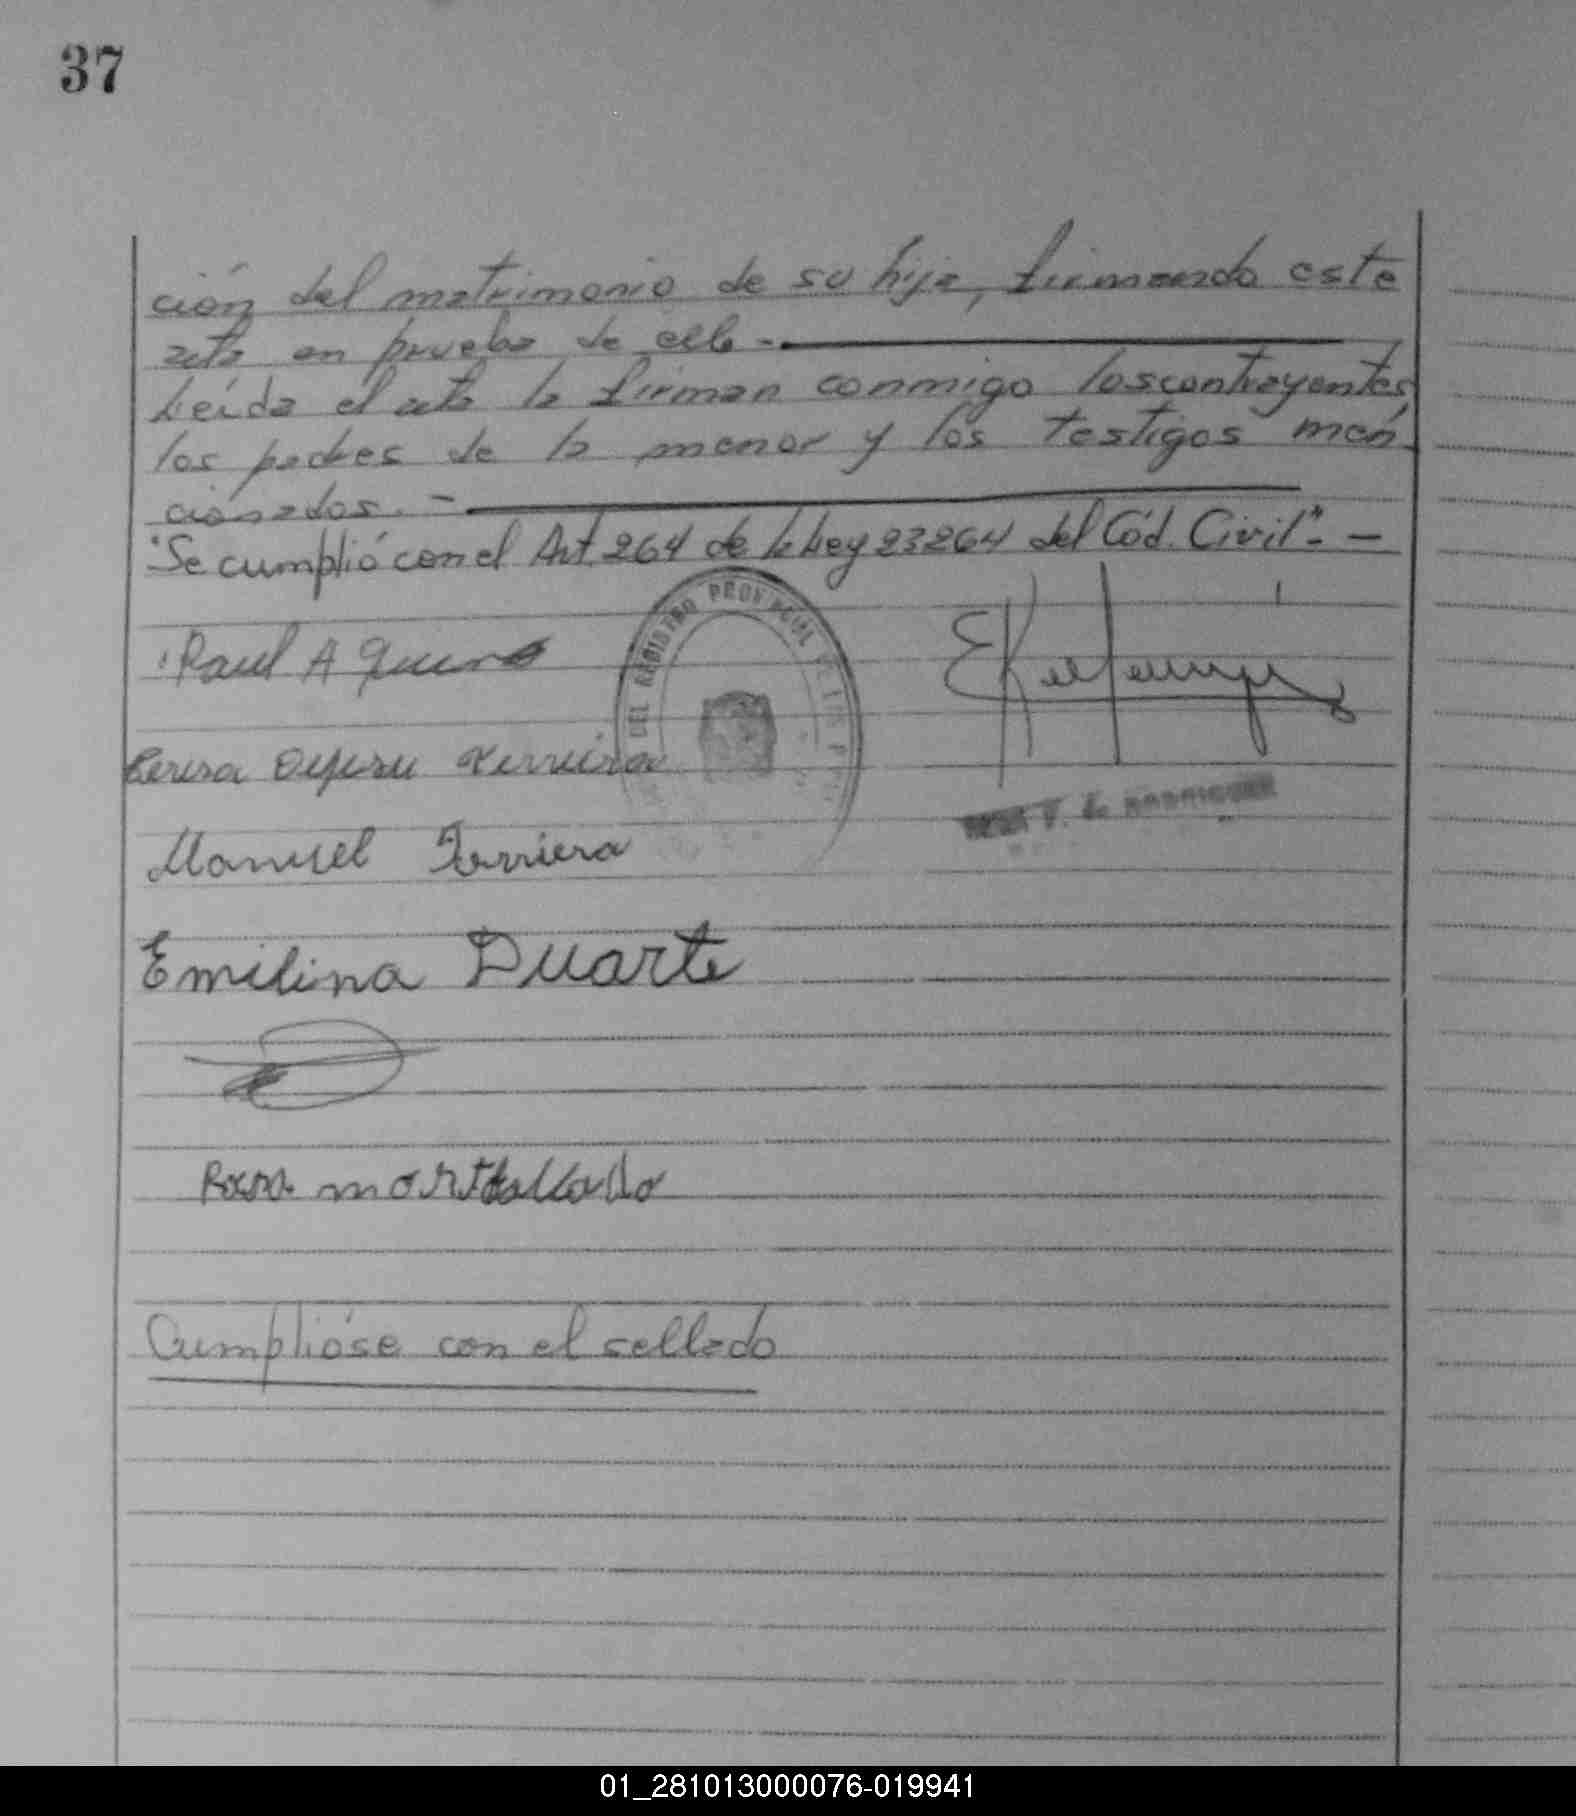 37
ción del matrimonio de su hija, firmando este
acta en prueba de ello.-
Leída el acta la firman conmigo los contrayentes,
los padres de la menor y los testigos men
cionados.-
"Se cumplió con el Art 264 de la Ley 23264 del Cód. Civil".-
Raul A
DEL REGISTRO PROVINCIAL DE LAS P
Teresa Ferreira
RODRIGUEZ
Manuel Ferriera
Emilina Duarte
Rosa
Cumplióse con el sellado
01_281013000076-019941